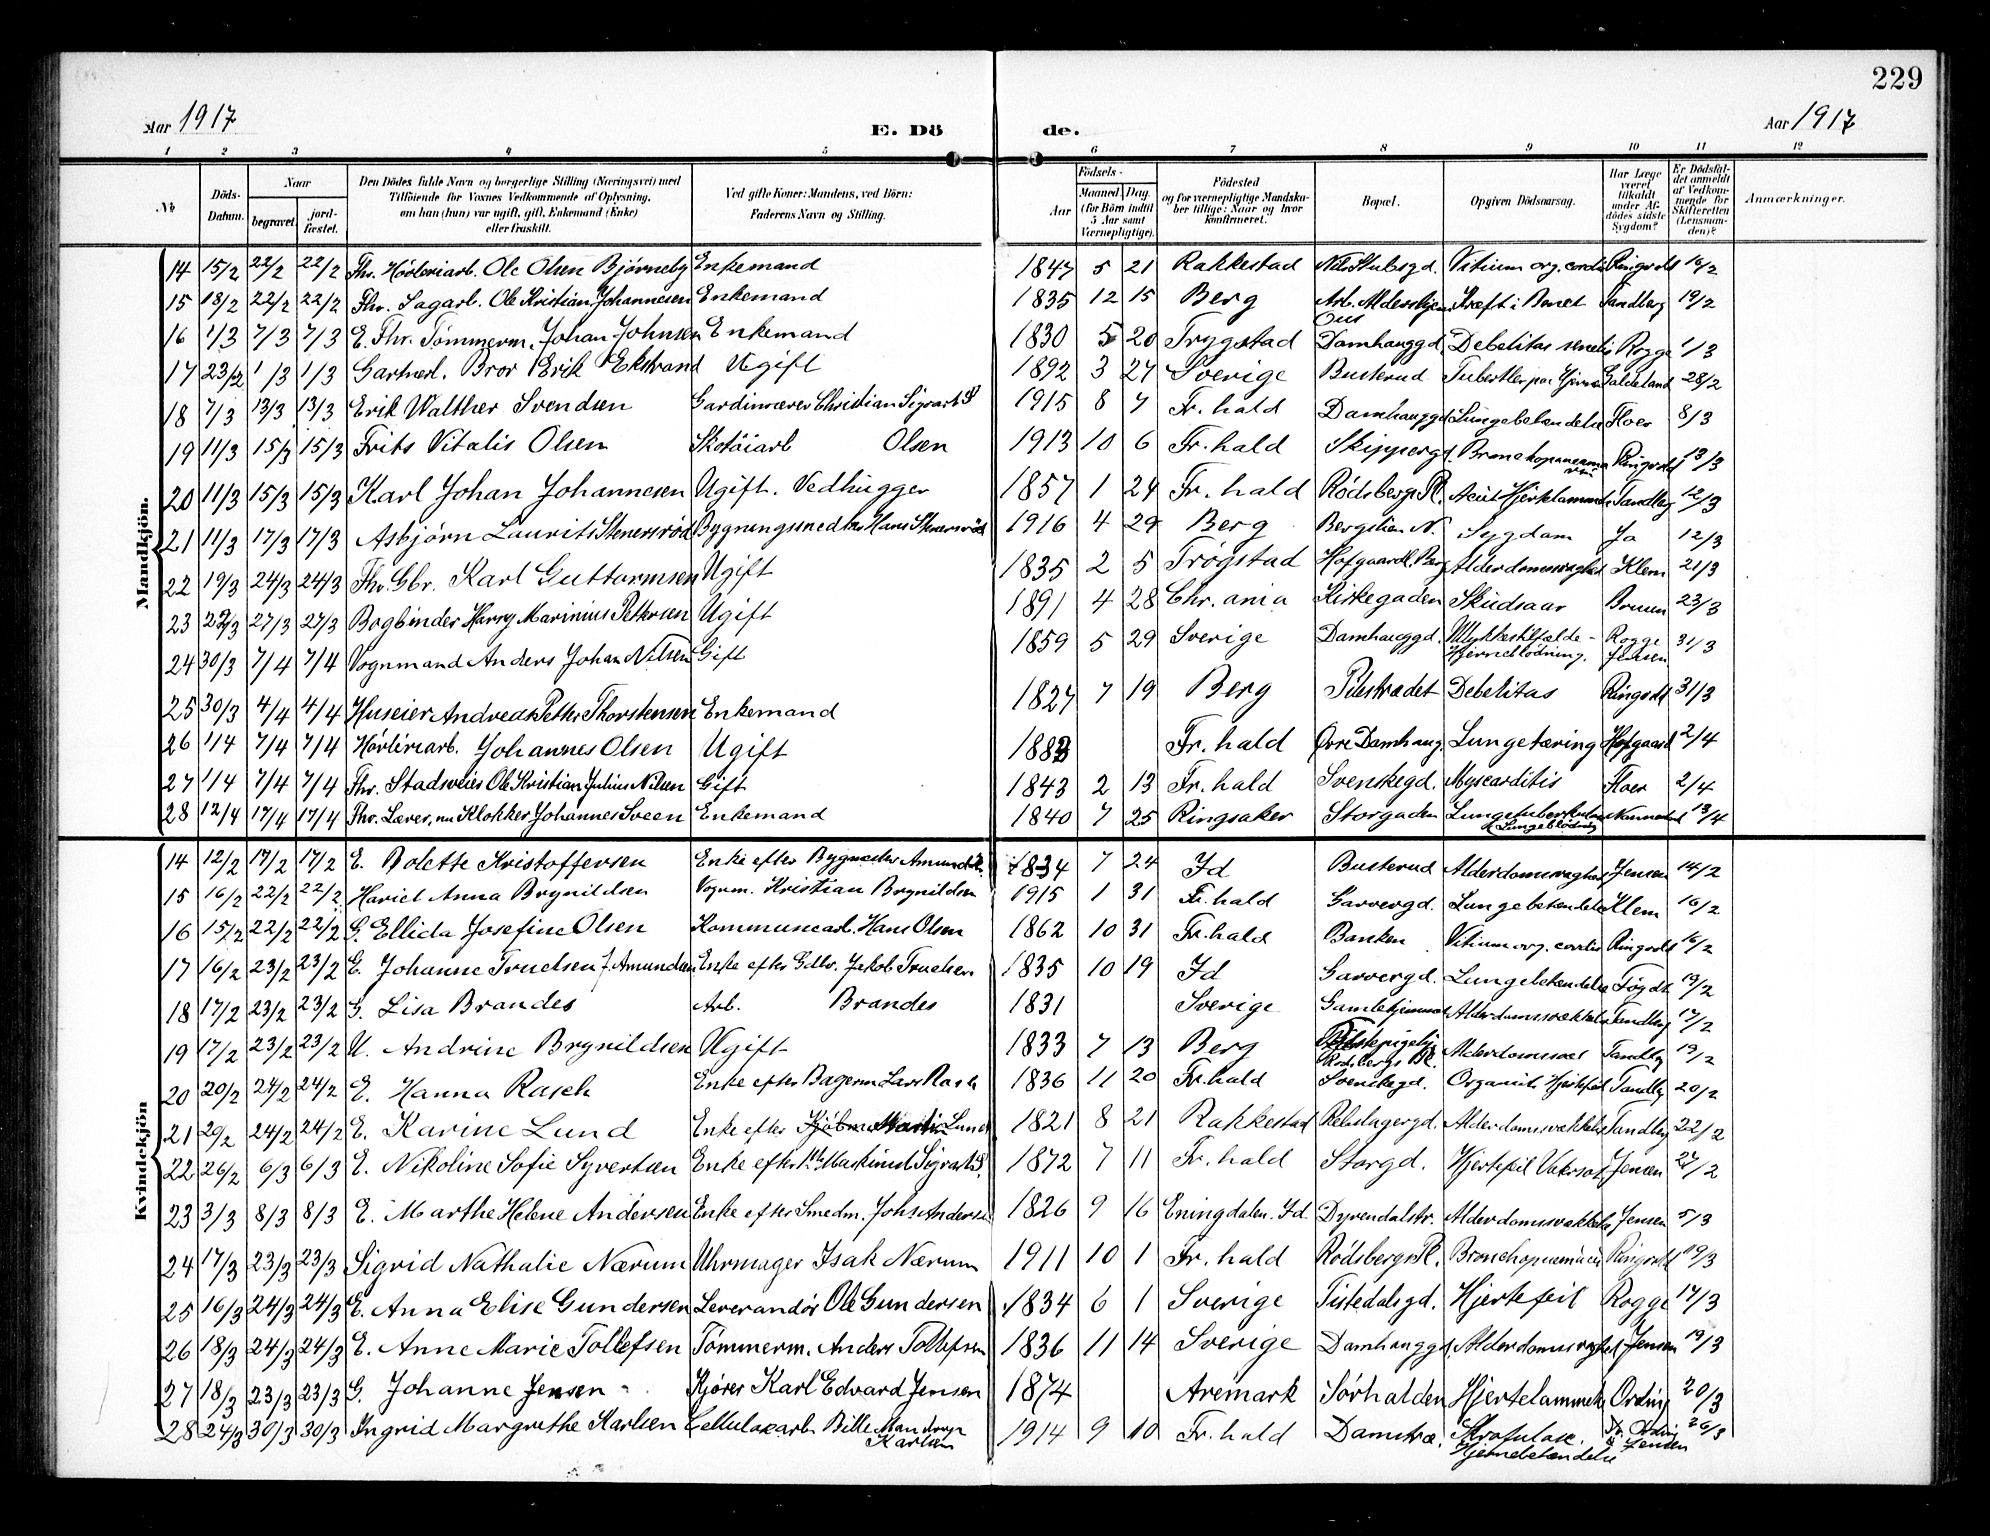 229
Aar 1917 E. Dö de. Aar 1917
1 2 3 4 5 6 7 8 9 10 11 12
№ Döds-Datum. Naar begravet. jord-fæstet. Den Dödes fulde Navn og borgerlige Stilling (Næringsvei) med Tilföiende for Voxnes Vedkommende af Oplysning, om han (hun) var ugift, gift, Enkemand (Enke) eller fraskilt. Ved gifte Koner: Mandens, ved Börn: Faderens Navn og Stilling. Födsels- Aar Maaned. Dag. (for Börn indtil 5 Aar samt Værnepligtige). Födested og for værnepligtige Mandskaber tillige: Naar og hvor konfirmeret. Bopæl. Opgiven Dödsaarsag. Har Læge været tilkaldt under Afdödes sidste Sygdom? Er Dödsfaldet anmeldt af Vedkommende for Skifteretten (Lensmanden)? Anmærkninger.
Mandkjön.
14 15/2 22/2 22/2 Fhv. Høvleriarb. Ole Olsen Bjørneby Enkemand 1847 5 21 Rakkestad Vitium org. cordis Ringvold 16/2
15 18/2 22/2 22/2 Fhv. Sagarb. Ole Kristian Johannesen Enkemand 1835 12 15 Berg Kræft i Brnet Tandberg 19/2
16 1/3 7/3 7/3 E. Fhv. Tømmerm. Johan Johnsen Enkemand 1830 5 20 Trygstad Damhauggd. Debelitas senelis Rogge 1/3
17 23/2 1/3 1/3 Gartnerl. Bror Erik Ekstrand Ugift 1892 3 27 Sverige Busterud Galdeland 28/2
18 7/3 13/3 13/3 Erik Walther Svendsen Gardinvæver Christian Sigvart S 1915 8 7 Fr. hald Damhauggd. Lungebetændelse Floer 8/3
19 11/3 15/3 15/3 Frits Vitalis Olsen Skotøiarb Olsen 1913 10 6 Fr. hald Skippergd. Ringvold 13/3
20 11/3 15/3 15/3 Karl Johan Johannesen Ugift. Vedhugger 1857 1 24 Fr. hald Rødsbergs Pl. Acut Hjertelammelse Tandberg 12/3
21 11/3 17/3 17/3 Asbjørn Laurits Stenersrød Bygningssnedker Hans Stenersrød 1916 4 29 Berg Bergstien N. Sygdom Ja 12/3
22 19/3 24/3 24/3 Fhv. Gbr. Karl Guttormsen Ugift 1835 2 5 Trøgstad Hofgaardl. Berg Alderdomssvaghed Klem 21/3
23 22/3 27/3 27/3 Bogbinder Harry Marinius Pettersen Ugift 1891 4 28 Chr.ania Kirkegaden Skudsaar Bruun 23/3
24 30/3 7/4 7/4 Vognmand Anders Johan Nilsen Gift 1859 5 29 Sverige Damhauggd. Ulykkestilfælde - Rogge 31/3
Hjerneblødning. Jensen
25 30/3 4/4 4/4 Huseier Andreas Petter Thorstensen Enkemand 1827 7 19 Berg Pilestrædet Debelitas Ringvold 31/3
26 1/4 7/4 7/4 Høvleriarb. Johannes Olsen Ugift 1883 Fr. hald Øvre Damhaug. Lungetæring Hofgaard 2/4
27 1/4 7/4 7/4 Fhv. Stadsveier Ole Kristian Julius Nilsen Gift 1843 2 13 Fr. hald Svenskegd. Myocarditis Floer 2/4
28 12/4 17/4 17/4 Fhv. Lærer, nu Klokker Johannes Sveen Enkemand 1840 7 25 Ringsaker Storgaden Lungetuberkulose Nannestad 13/4
& Lungeblødning
Kvindekjön
14 12/2 17/2 17/2 E. Bolette Kristoffersen Enke efter Bygmester 1834 7 24 Id Busterud Alderdomssvaghed Jensen 14/2
15 16/2 22/2 22/2 Hariet Anna Brynildsen Vognm. Kristian Brynildsen 1915 1 31 Fr. hald Garvergd. Lungebetændelse Klem 16/2
16 15/2 22/2 22/2 G. Ellida Josefine Olsen Kommunearb. Hans Olsen 1862 10 31 Fr. hald Banken Vitium org. cordis Ringvold 16/2
17 16/2 23/2 23/2 E. Johanne Truelsen f. Amundsen Enke efter Gdbr. Jakob Truelsen 1835 10 19 Id Garvergd. Lungebetændelse Fögdt 19/2
18 17/2 23/2 23/2 G. Lisa Brandes Arb. Brandes 1831 Sverige Gamlehjemmet Alderdomssvækkelse Tandberg 17/2
19 17/2 23/2 23/2 U. Andrine Brynildsen Ugift 1833 7 13 Berg Rødsbergs Pl. Tandberg 19/2
20 20/2 24/2 24/2 E. Hanna Rasch Enke efter Bagerm Lars Rasch 1836 11 20 Fr. hald Svenskegd. Organisk Hjertefeil Tandberg 20/2
21 29/2 24/2 24/2 E. Karine Lund Enke efter Kjøbm Martin Lund 1821 8 21 Rakkestad Rebslagergd. Alderdomssvækkelse Tandberg 22/2
22 26/2 6/3 6/3 E. Nikoline Sofie Syvertsen Enke efter Maskinist Sigvart S. 1872 7 11 Fr. hald Storgd. Hjertefeil Vatersot Jensen 27/2
23 3/3 8/3 8/3 E. Marthe Helene Andersen Enke efter Smedm. Johs Andersen 1826 9 16 Eningdalen. Id Dyrendalstr. Alderdomssvækkelse Jensen 5/3
24 17/3 23/3 23/3 Sigrid Nathalie Nærum Uhrmager Isak Nærum 1911 10 1 Fr. hald Rødsbergs Pl. Bronchopneumoni Ringvold 19/3
25 16/3 24/3 24/3 E. Anna Elise Gundersen Leverandør Ole Gundersen 1834 6 1 Sverige Tistedalsgd. Hjertefeil Rogge 17/3
26 18/3 24/3 24/3 E. Anne Marie Tollefsen Tømmerm. Anders Tollefsen 1836 11 14 Sverige Damhauggd. Alderdomssvaghed Jensen 19/3
27 18/3 23/3 23/3 G. Johanne Jensen Kjører Karl Edvard Jensen 1874 Aremark Sørhalden Hjertelammelse Ording 20/3
28 24/3 30/3 30/3 Ingrid Margrethe Karlsen Cellulosearb. Bille Mandrup 1914 9 10 Fr. hald Damstræ. Skrofulose. Dr. Ording 26/3
Karlsen Hjernebetændelse & Jensen